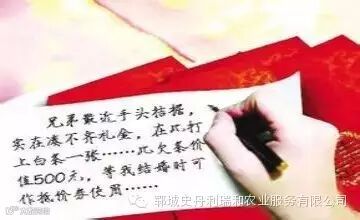 兄弟最近手头拮据，
实在凑不齐礼金，在此打
上白条一张……此欠条价
值500元，等我结婚时可
作抵价券使用……
郓城史丹利瑞和农业服务有限公司